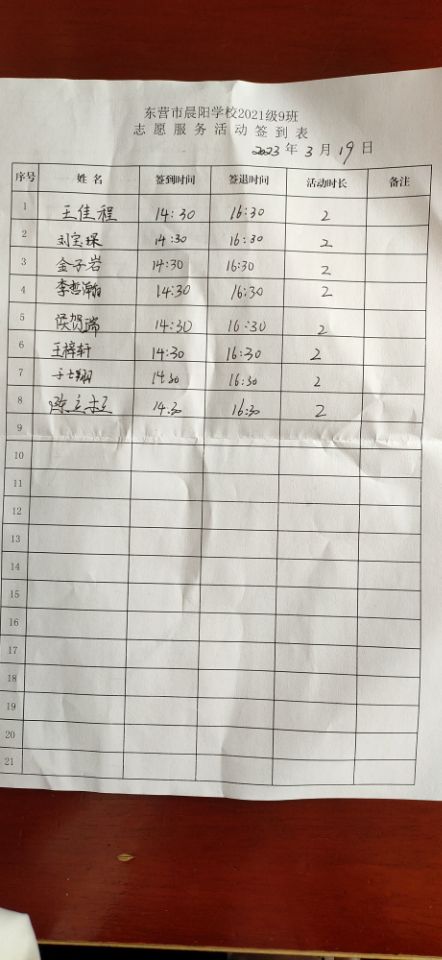 东营市晨阳学校2021级9班
志愿服务活动签到表
2023年3月19日
序号 姓名 签到时间 签退时间 活动时长 备注
1 王佳程 14:30 16:30 2
2 刘宝琛 14:30 16:30 2
3 金子岩 14:30 16:30 2
4 李哲瀚 14:30 16:30 2
5 侯贺瑞 14:30 16:30 2
6 王梓轩 14:30 16:30 2
7 14:30 16:30 2
8 14:30 16:30 2
9
10
11
12
13
14
15
16
17
18
19
20
21